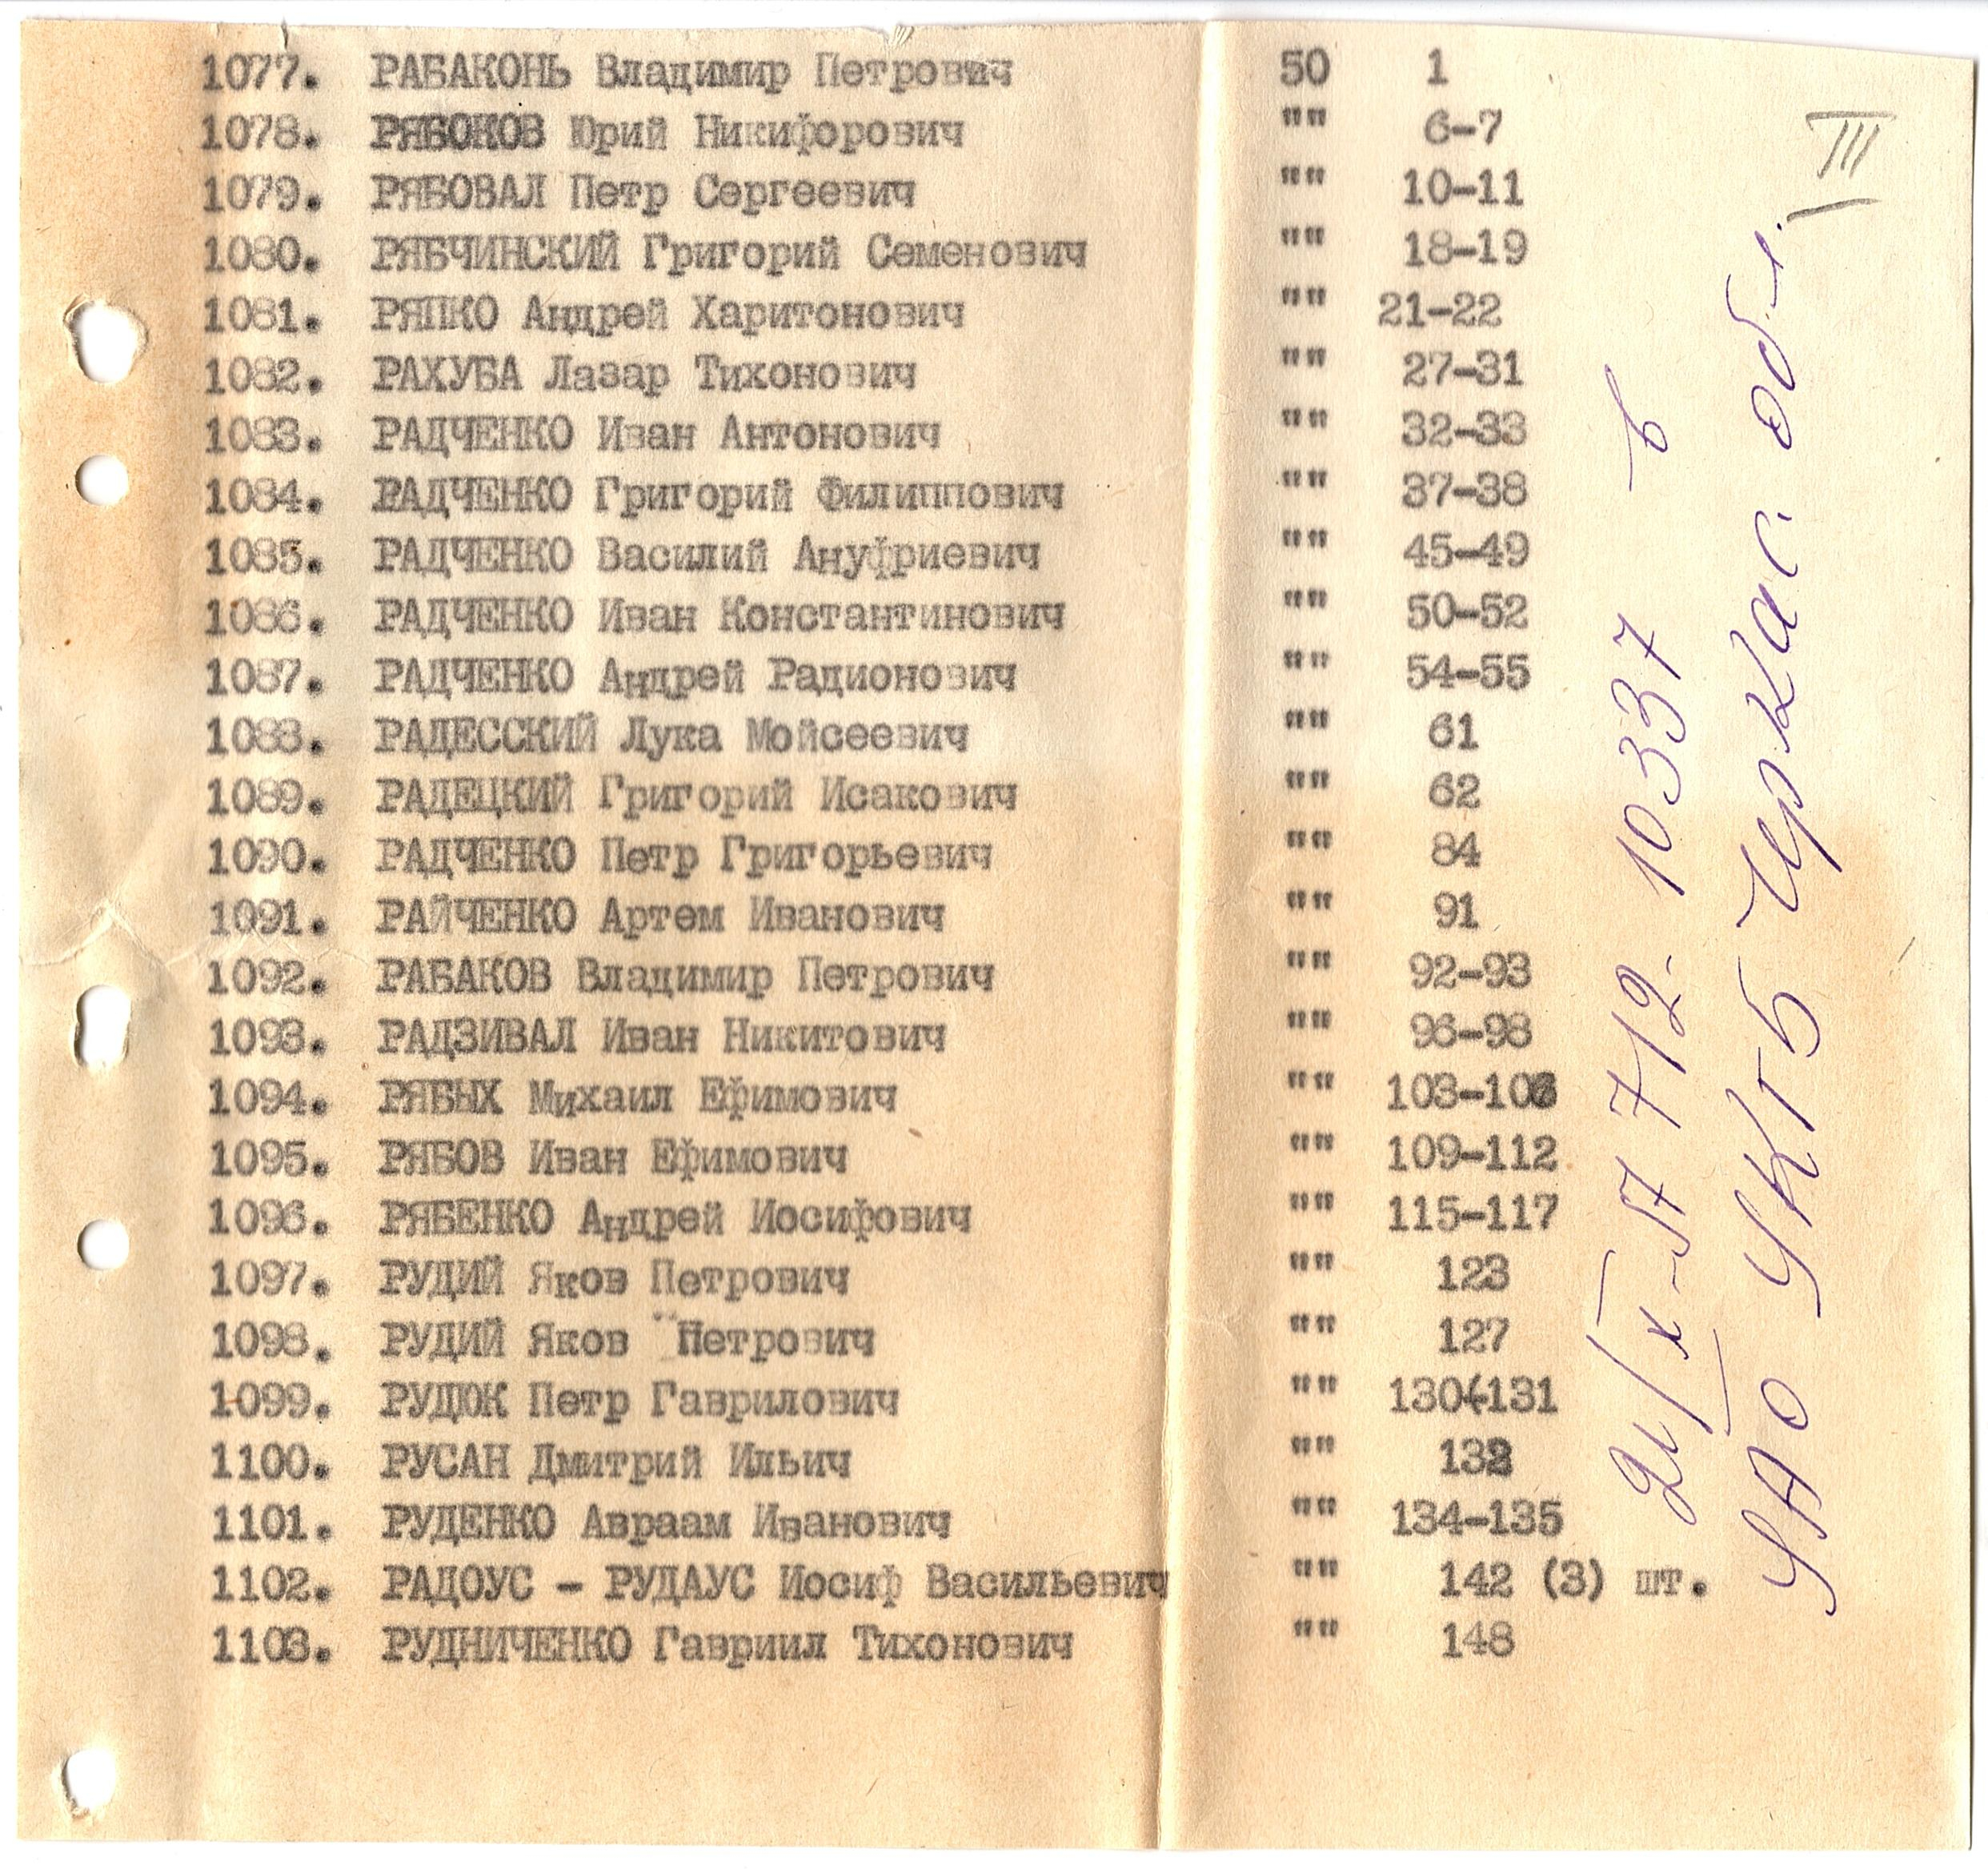 1077. РАБАКОНЬ Владимир Петрович 50 1
1078. РЯБОКОВ Юрий Никифорович "" 6-7
1079. РЯБОВАЛ Петр Сергеевич "" 10-11
1080. РЯБЧИНСКИЙ Григорий Семенович "" 18-19
1081. РЯПКО Андрей Харитонович "" 21-22
1082. РАХУБА Лазар Тихонович "" 27-31
1083. РАДЧЕНКО Иван Антонович "" 32-33
1084. РАДЧЕНКО Григорий Филиппович "" 37-38
1085. РАДЧЕНКО Василий Ануфриевич "" 45-49
1086. РАДЧЕНКО Иван Константинович "" 50-52
1087. РАДЧЕНКО Андрей Радионович "" 54-55
1088. РАДЕССКИЙ Лука Мойсеевич "" 61
1089. РАДЕЦКИЙ Григорий Исакович "" 62
1090. РАДЧЕНКО Петр Григорьевич "" 84
1091. РАЙЧЕНКО Артем Иванович "" 91
1092. РАБАКОВ Владимир Петрович "" 92-93
1093. РАДЗИВАЛ Иван Никитович "" 96-98
1094. РЯБЫХ Михаил Ефимович "" 103-106
1095. РЯБОВ Иван Ефимович "" 109-112
1096. РЯБЕНКО Андрей Иосифович "" 115-117
1097. РУДИЙ Яков Петрович "" 123
1098. РУДИЙ Яков Петрович "" 127
1099. РУДЮК Петр Гаврилович "" 130-131
1100. РУСАН Дмитрий Ильич "" 132
1101. РУДЕНКО Авраам Иванович "" 134-135
1102. РАДОУС - РУДАУС Иосиф Васильевич "" 142 (3) шт.
1103. РУДНИЧЕНКО Гавриил Тихонович "" 148
III
21/X-57 712-10337 в
УАО УКГБ Черкас. обл.